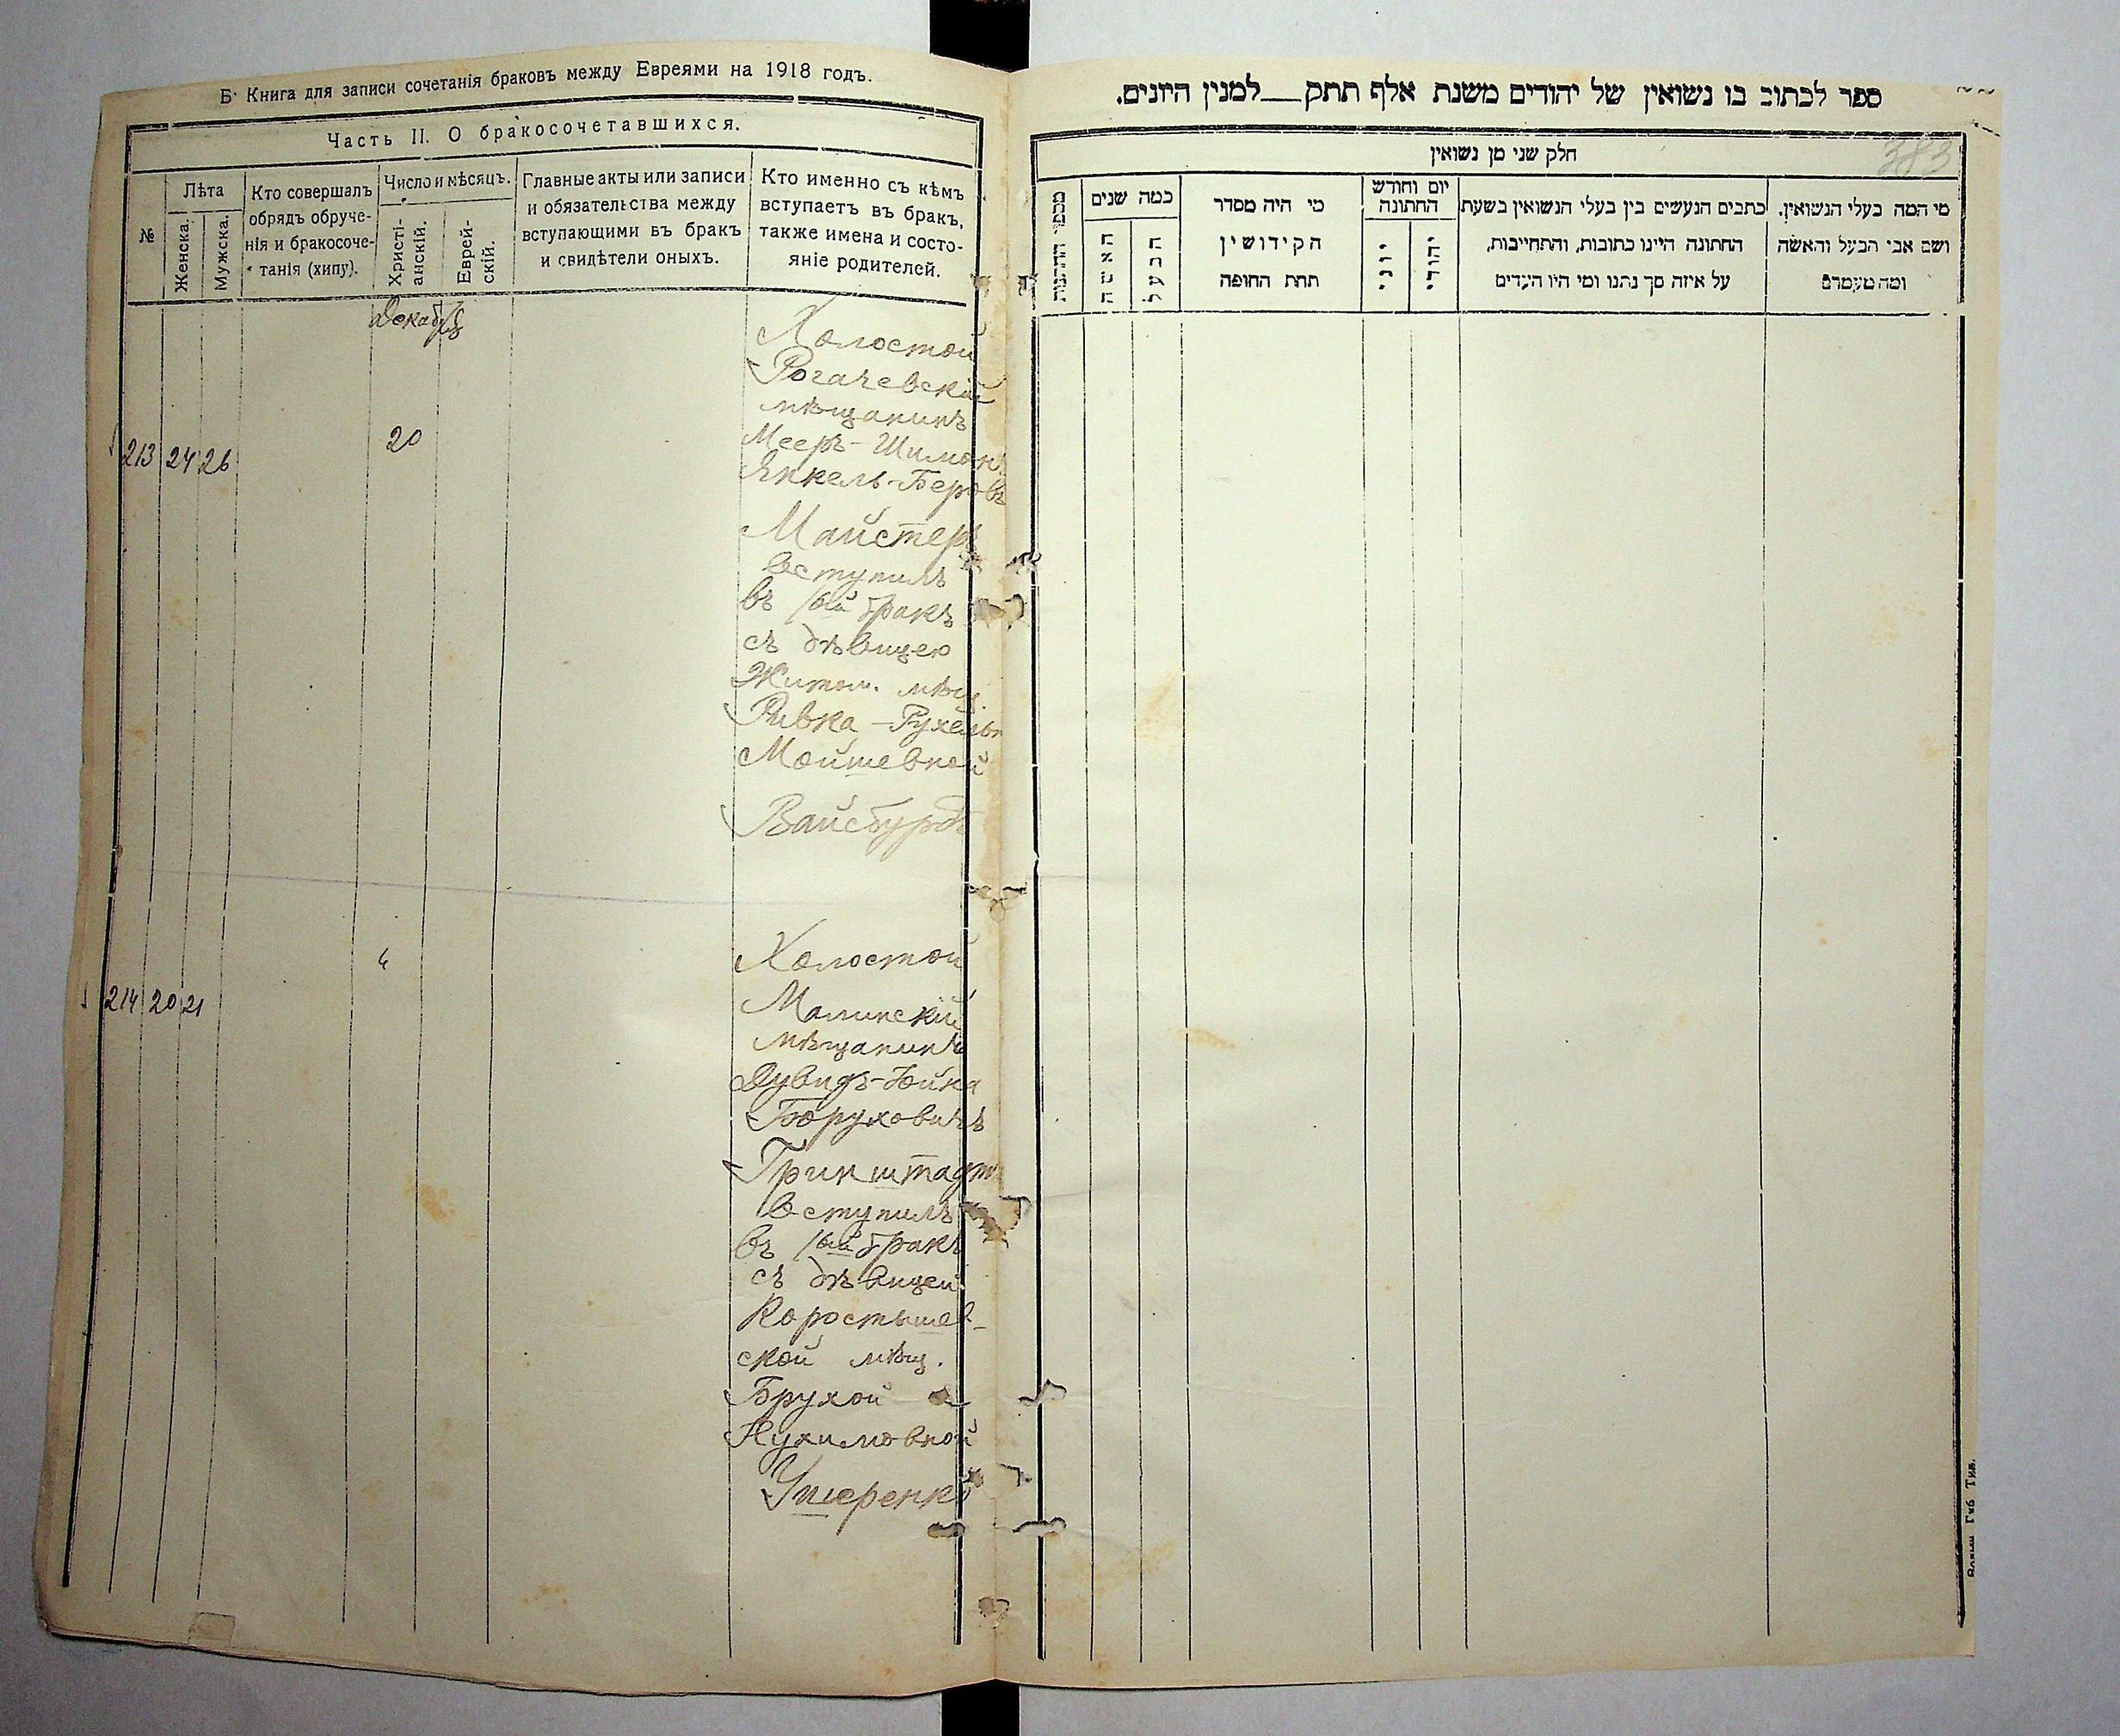 Б. Книга для записи сочетанія браковъ между Евреями на 1918 годъ.
Часть II. О бракосочетавшихся.
№
Лѣта
Женска.
Мужска.
Кто совершалъ
обрядъ обруче-
нія и бракосоче-
танія (хипу).
Число и мѣсяцъ.
Христі-
анскій.
Еврей-
скій.
Главные акты или записи
и обязательства между
вступающими въ бракъ
и свидѣтели оныхъ.
Кто именно съ кѣмъ
вступаетъ въ бракъ,
также имена и состо-
яніе родителей.
Декабрь
213 24 26 20
Холостой
Рогачевскій
мѣщанинъ
Мееръ-Шимонъ
Янкель-Беровъ
Майстеръ
вступилъ
въ 1ый бракъ
съ дѣвицею
Житом. мѣщ.
Ривка-Рухель
Мойшевной
Вайсбурдъ
214 20 21 4
Холостой
Малинскій
мѣщанинъ
Дувидъ-Хойна
Боруховичъ
Гринштадтъ
вступилъ
въ 1ый бракъ
съ дѣвицей
Коростышев-
ской мѣщ.
Брухой
Нухимовной
Ушеренко
ספר לכתוב בו נשואין של יהודים משנת אלף תתק__למנין היונים.
383
חלק שני מן נשואין
מספר החתונות
כמה שנים
האשה
הבעל
מי היה מסדר
הקידושין
תחת החופה
יום וחודש
החתונה
יוני
יהודי
כתבים הנעשים בין בעלי הנשואין בשעת
החתונה היינו כתובות, והתחייבות,
על איזה סך נתנו ומי היו העדים
מי המה בעלי הנשואין.
ושם אבי הבעל והאשה
ומה מעמדם